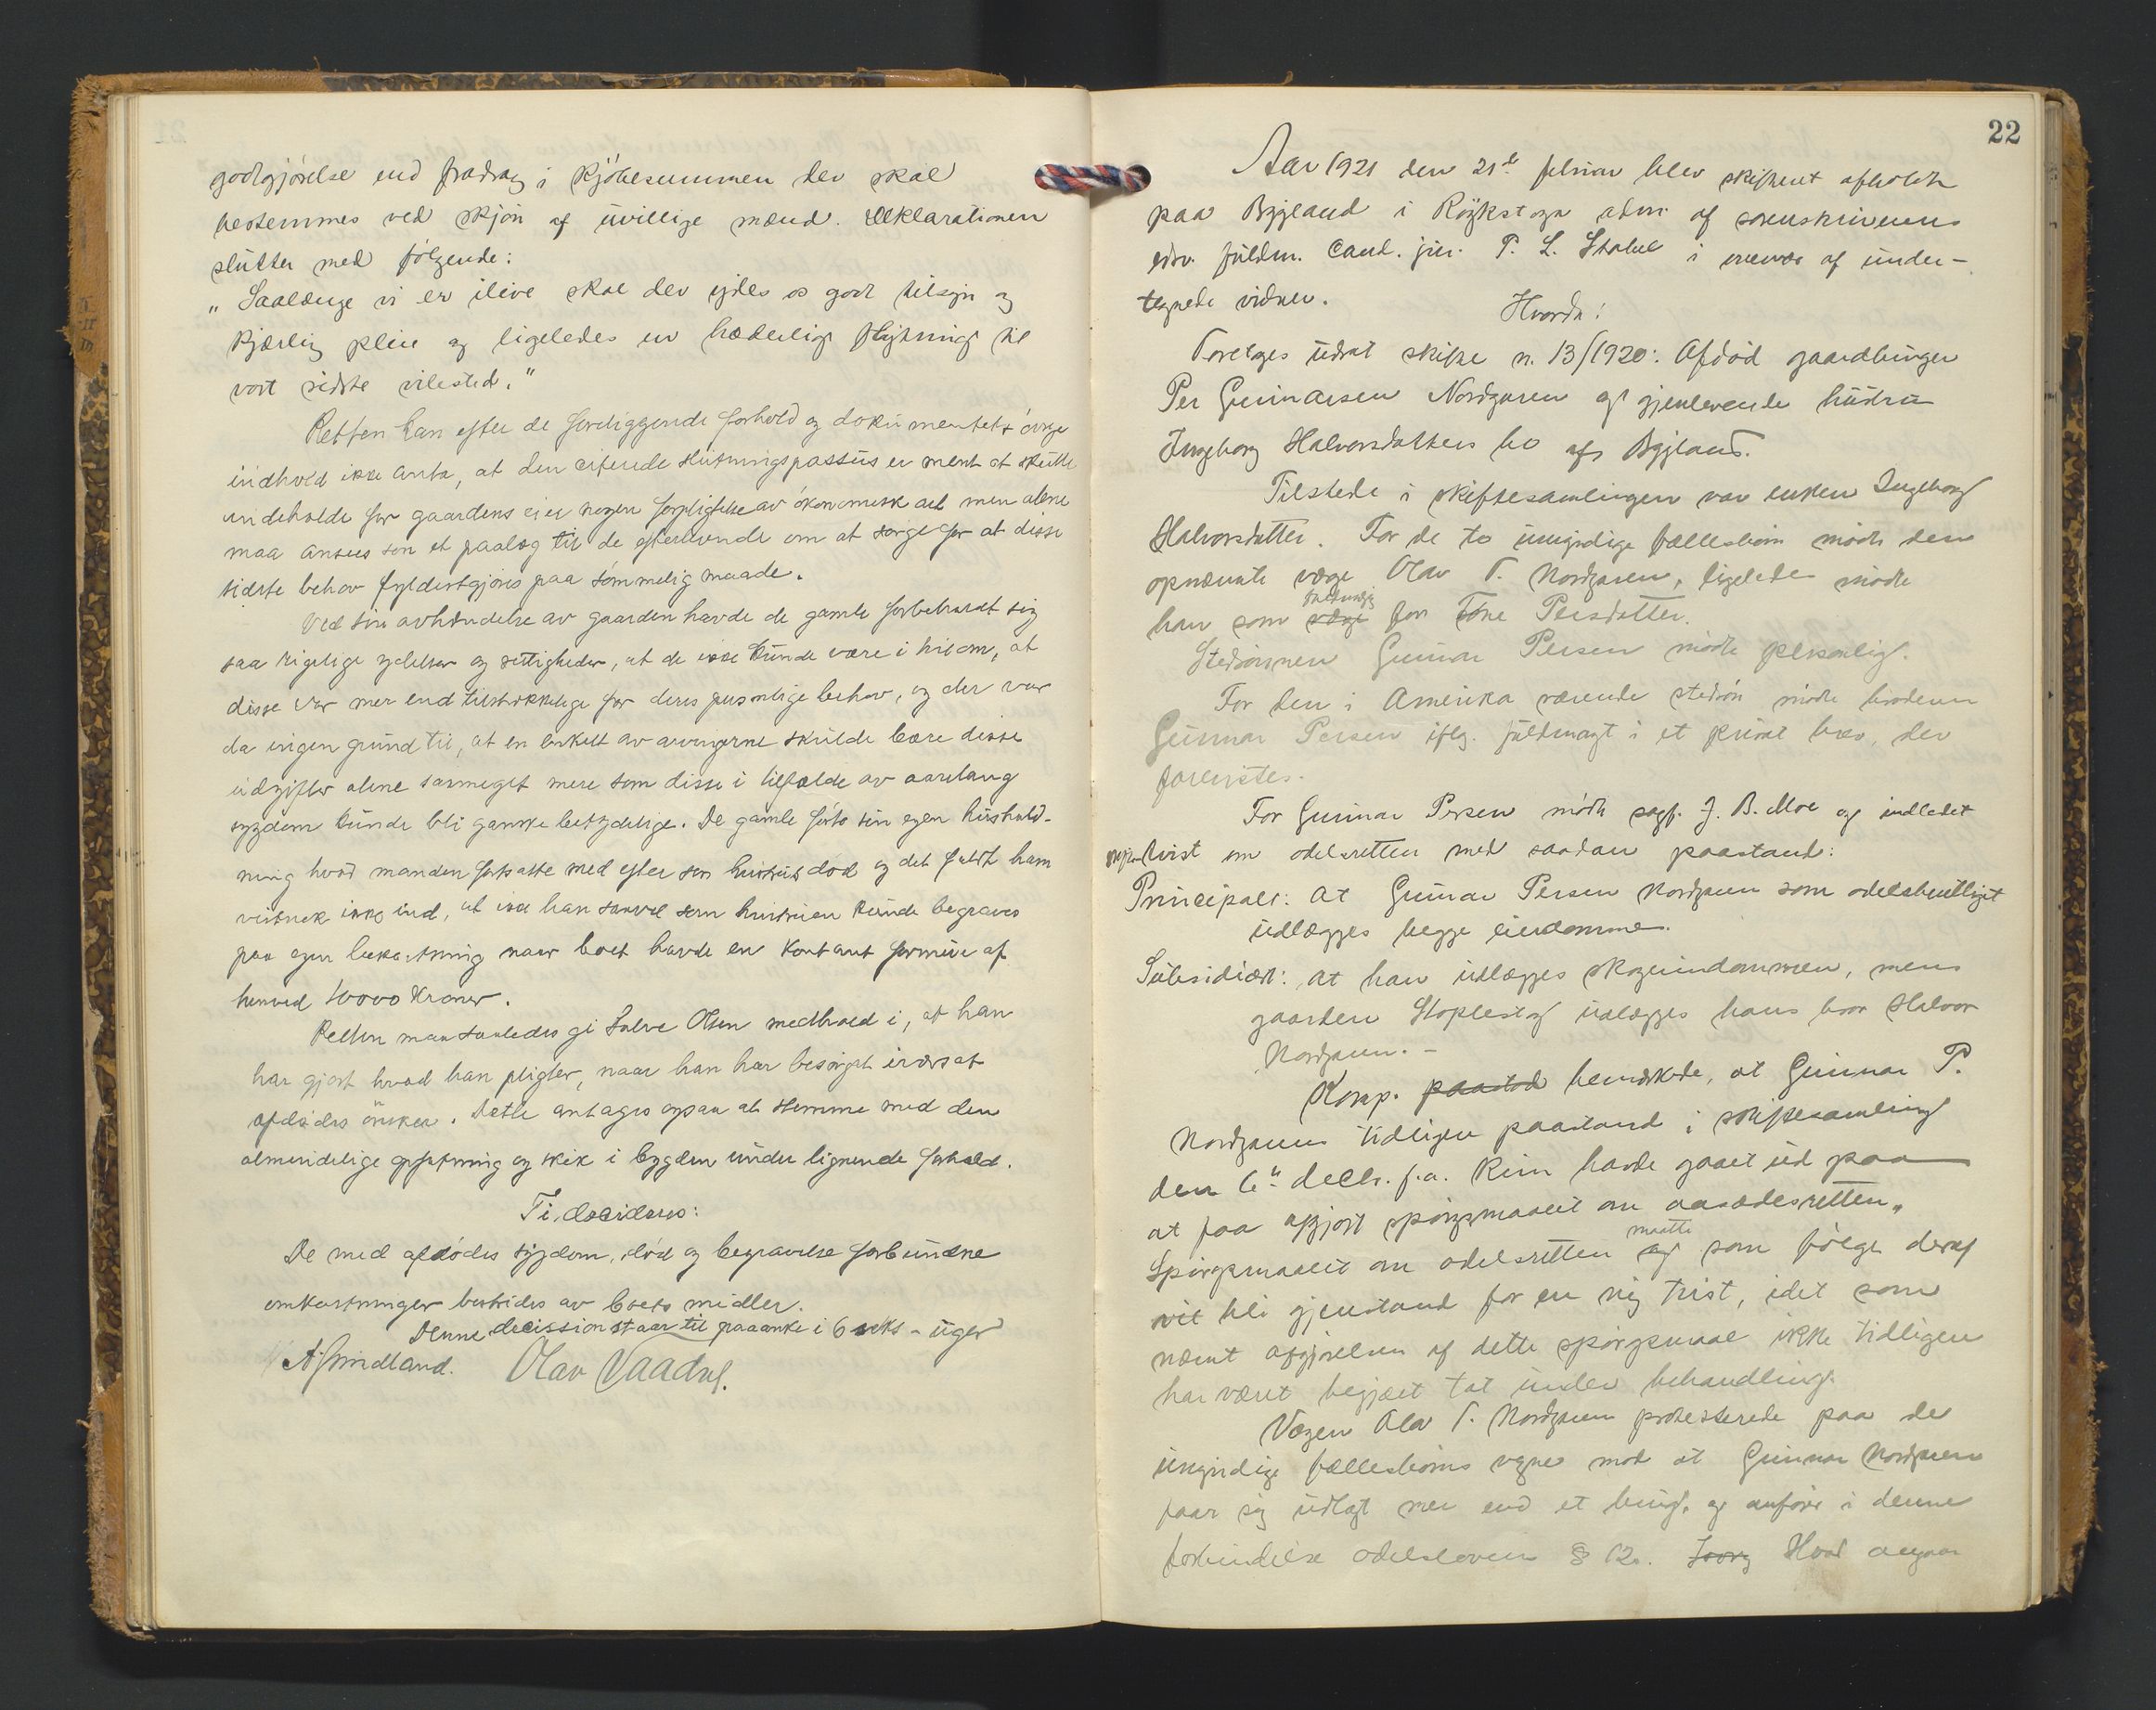 godtgjørelse end fradrag i kjøbesummen der skal
bestemmes ved skjøn af uvillige mænd. Deklarationen
slutter med følgende:
"Saalænge vi er ilive skal der ydes os godt tilsyn og
kjærlig pleie og ligeledes en hæderlig flytning til
vort sidste vilested."
Retten kan efter de foreliggende forhold og dokumentets øvrige
indhold ikke anta, at den citerede slutningspassus er ment at skulle
indeholde for gaardens eier nogen forpligtelse av økonomisk art men alene
maa ansees som et paalæg til de efterlevende om at sørge for at disse
sidste behov fyldestgjøres paa sømmelig maade.
Ved sin avhændelse av gaarden havde de gamle forbeholdt sig
saa rigelige ydelser og rettigheder, at de ikke kunde være i tvil om, at
disse var mer end tilstrækkelige for deres personlige behov, og der var
da ingen grund til, at en enkelt av arvingerne skulde bære disse
udgifter alene saameget mere som disse i tilfælde av aarelang
sygdom kunde bli ganske betydelige. De gamle førte sin egen hushold-
ning hvad manden fortsatte med efter sin hustrus død og det faldt ham
visnok ikke ind, at ikke han saavel som hustruen kunde begraves
paa egen bekostning naar boet havde en kontant formue af
henved 10000 Kroner.
Retten maa saaledes gi Salve Olsen medhold i, at han
har gjort hvad han pligter, naar han har besørget iværksat
afdødes ønsker. Dette antages ogsaa at stemme med den
almindelige opfatning og skik i bygden under lignende forhold.
Ti decideres:
De med afdødes sygdom, død og begravelse forbundne
omkostninger bestrides av boets midler.
Denne decission staar til paaanke i 6 seks - uger
A. Smidland. Olav Vaadnes.
22
Aar 1921 den 21de februar blev skifteret afholdt
paa Bygland i Røykstoga adm. af sorenskriverens
edsv. fuldm. Cand. jur. P. L. Stabel i overvær af under-
tegnede vidner.
Hvorda:
Foretoges udsat skifte n. 13/1920: Afdød gaardbruger
Per Gunnarsen Nordgaren og gjenlevende hustru
Ingeborg Halvorsdatters bo af Bygland.
Tilstede i skiftesamlingen var enken Ingeborg
Halvorsdatter. For de to umyndige fællesbørn mødte den
opnævnte verge Olav T. Nordgaren, ligeledes mødte
fuldmægtig
han som verge for Tone Persdatter.
Stedsønnen Gunnar Persen mødte personlig.
For den i Amerika værende stedsøn mødte broderen
Gunnar Persen iflg. fuldmagt i et privat brev, der
forevistes.
For Gunnar Persen mødte sagf. J. B. Moe og indledet
tvist om odelsretten med saadan paastand:
Principalt: at Gunnar Persen Nordgaren som odelsberettiget
udlægges begge eiendomme.
Subsidiært: at han udlægges skogeiendommen, mens
gaarden Stoplestog udlægges hans bror Halvor
Nordgaren. -
Komp. paastod bemærkede, at Gunnar P.
Nordgarens tidligere paastand i skiftesamling
den 6te decbr. f.a. kun havde gaaet ud paa
at faa afgjort spørgsmaalet om aasædesretten,
maatte
Spørgsmaalet om odelsretten og som følge deraf
vil bli gjenstand for en ny tvist, idet som
nævnt afgjørelsen af dette spørgsmaal ikke tidligere
har været begjært tat under behandling.
Vergen Olav T. Nordgaren protesterede paa de
umyndige fællesbørns vegne mod at Gunnar Nordgaren
faar sig udlagt mer end et brug, og anfører i denne
forbindelse odelsloven § 12. Hvad angaar